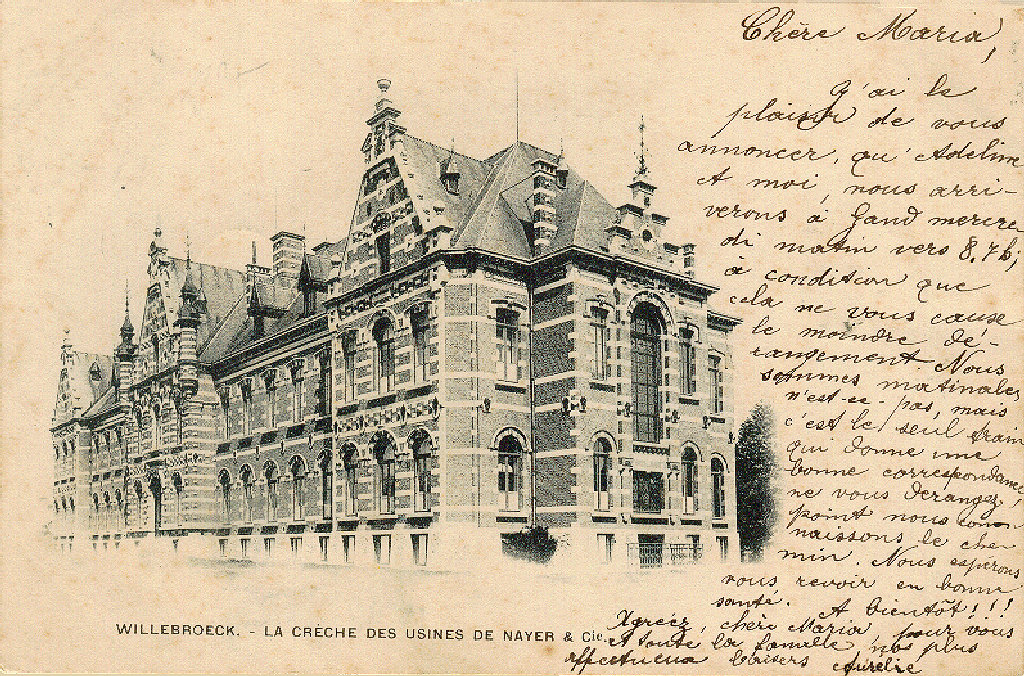 Chère Maria,
J'ai le
plaisir de vous
annoncer, qu'Adeline
et moi, nous arri-
verons à Gand mercre
di matin vers 8,46;
à condition que
cela ne vous cause
le moindre dé-
rangement. Nous
sommes matinales
n'est-ce-pas, mais
c'est le seul train
qui donne une
bonne correspondance,
ne vous dérangez,
point nous conn
naissons le che
min. Nous espérons
vous revoir en bonne
santé. A bientôt!!!
Agréez, chère Maria, pour vous
et toute la famille, nos plus
affectueux baisers Aurélie
WILLEBROECK. - LA CRÈCHE DES USINES DE NAYER & Cie.